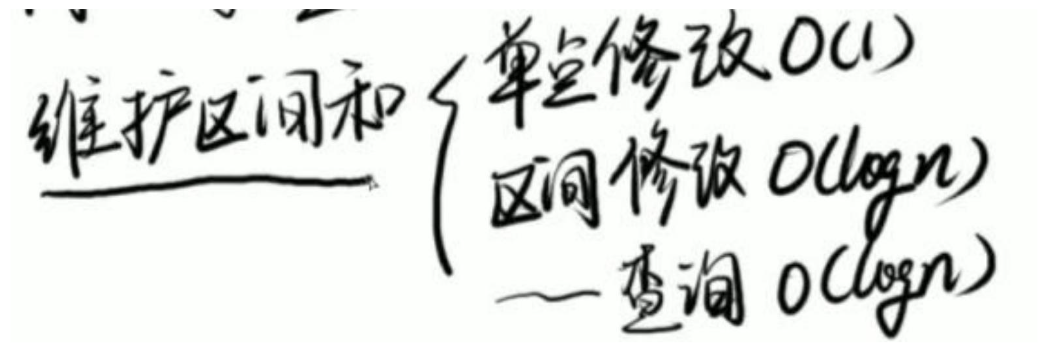 维护区间和
单点修改 O(1)
区间修改 O(logn)
— 查询 O(logn)